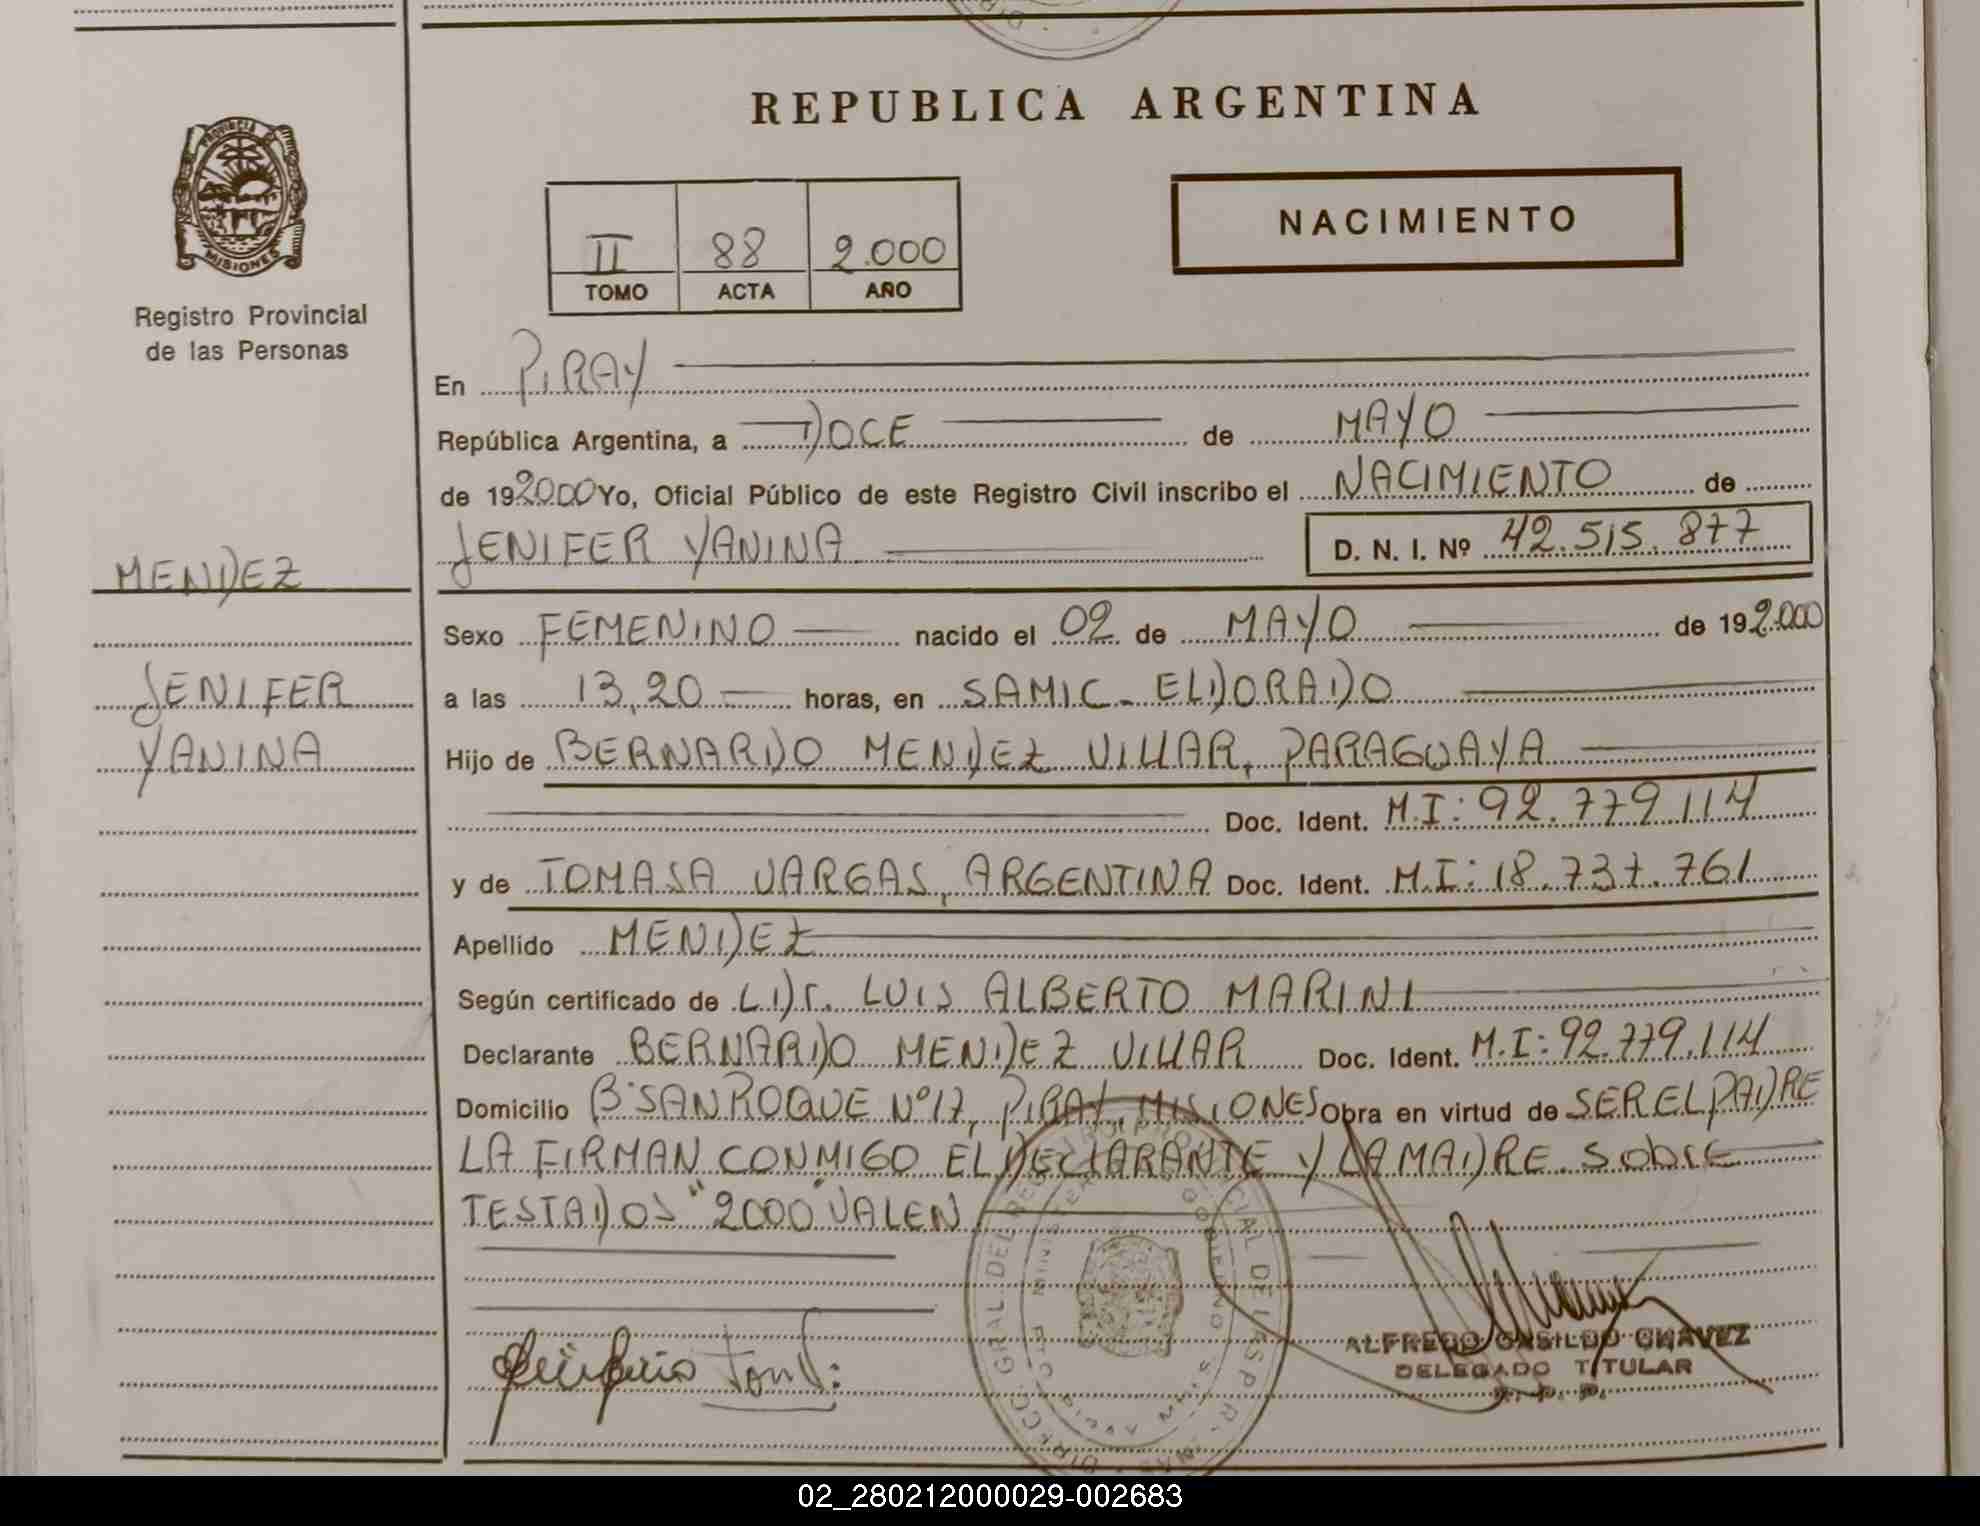 REPUBLICA ARGENTINA
PROVINCIA DE
MISIONES
Registro Provincial
de las Personas
II 88 2.000
TOMO ACTA AÑO
NACIMIENTO
En PIRAY
República Argentina, a DOCE de MAYO
de 192000 Yo, Oficial Público de este Registro Civil inscribo el NACIMIENTO de
JENIFER YANINA D. N. I. Nº 42.515.877
MENDEZ
JENIFER
YANINA
Sexo FEMENINO nacido el 02 de MAYO de 192.000
a las 13,20 horas, en SAMIC - ELDORADO
Hijo de BERNARDO MENDEZ VILLAR, PARAGUAYA
Doc. Ident. M.I: 92.779.114
y de TOMASA VARGAS, ARGENTINA Doc. Ident. M.I: 18.737.761
Apellido MENDEZ
Según certificado de L.Dr. LUIS ALBERTO MARINI
Declarante BERNARDO MENDEZ VILLAR Doc. Ident. M.I: 92.779.114
Domicilio Bº SAN ROQUE Nº 17, PIRAY, MISIONES Obra en virtud de SER EL PADRE
LA FIRMAN CONMIGO EL DECLARANTE Y LA MADRE. Sobre
TESTADOS "2000" VALEN
ALFREDO CASILDO CHAVEZ
DELEGADO TITULAR
R. P. P.
02_280212000029-002683